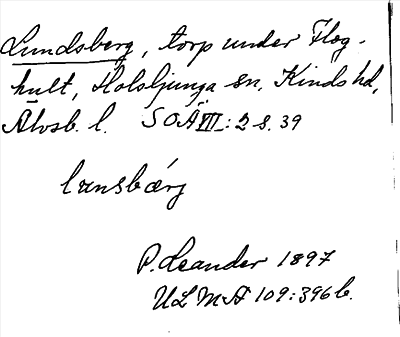 Lundsberg, torp under Flæg-
hult, Holsljunga sn, Kinds hd,
Älvsb. l. SOÄ VII:2 s. 39
lunsbærj
P. Leander 1897
ULMA 109:396 b.